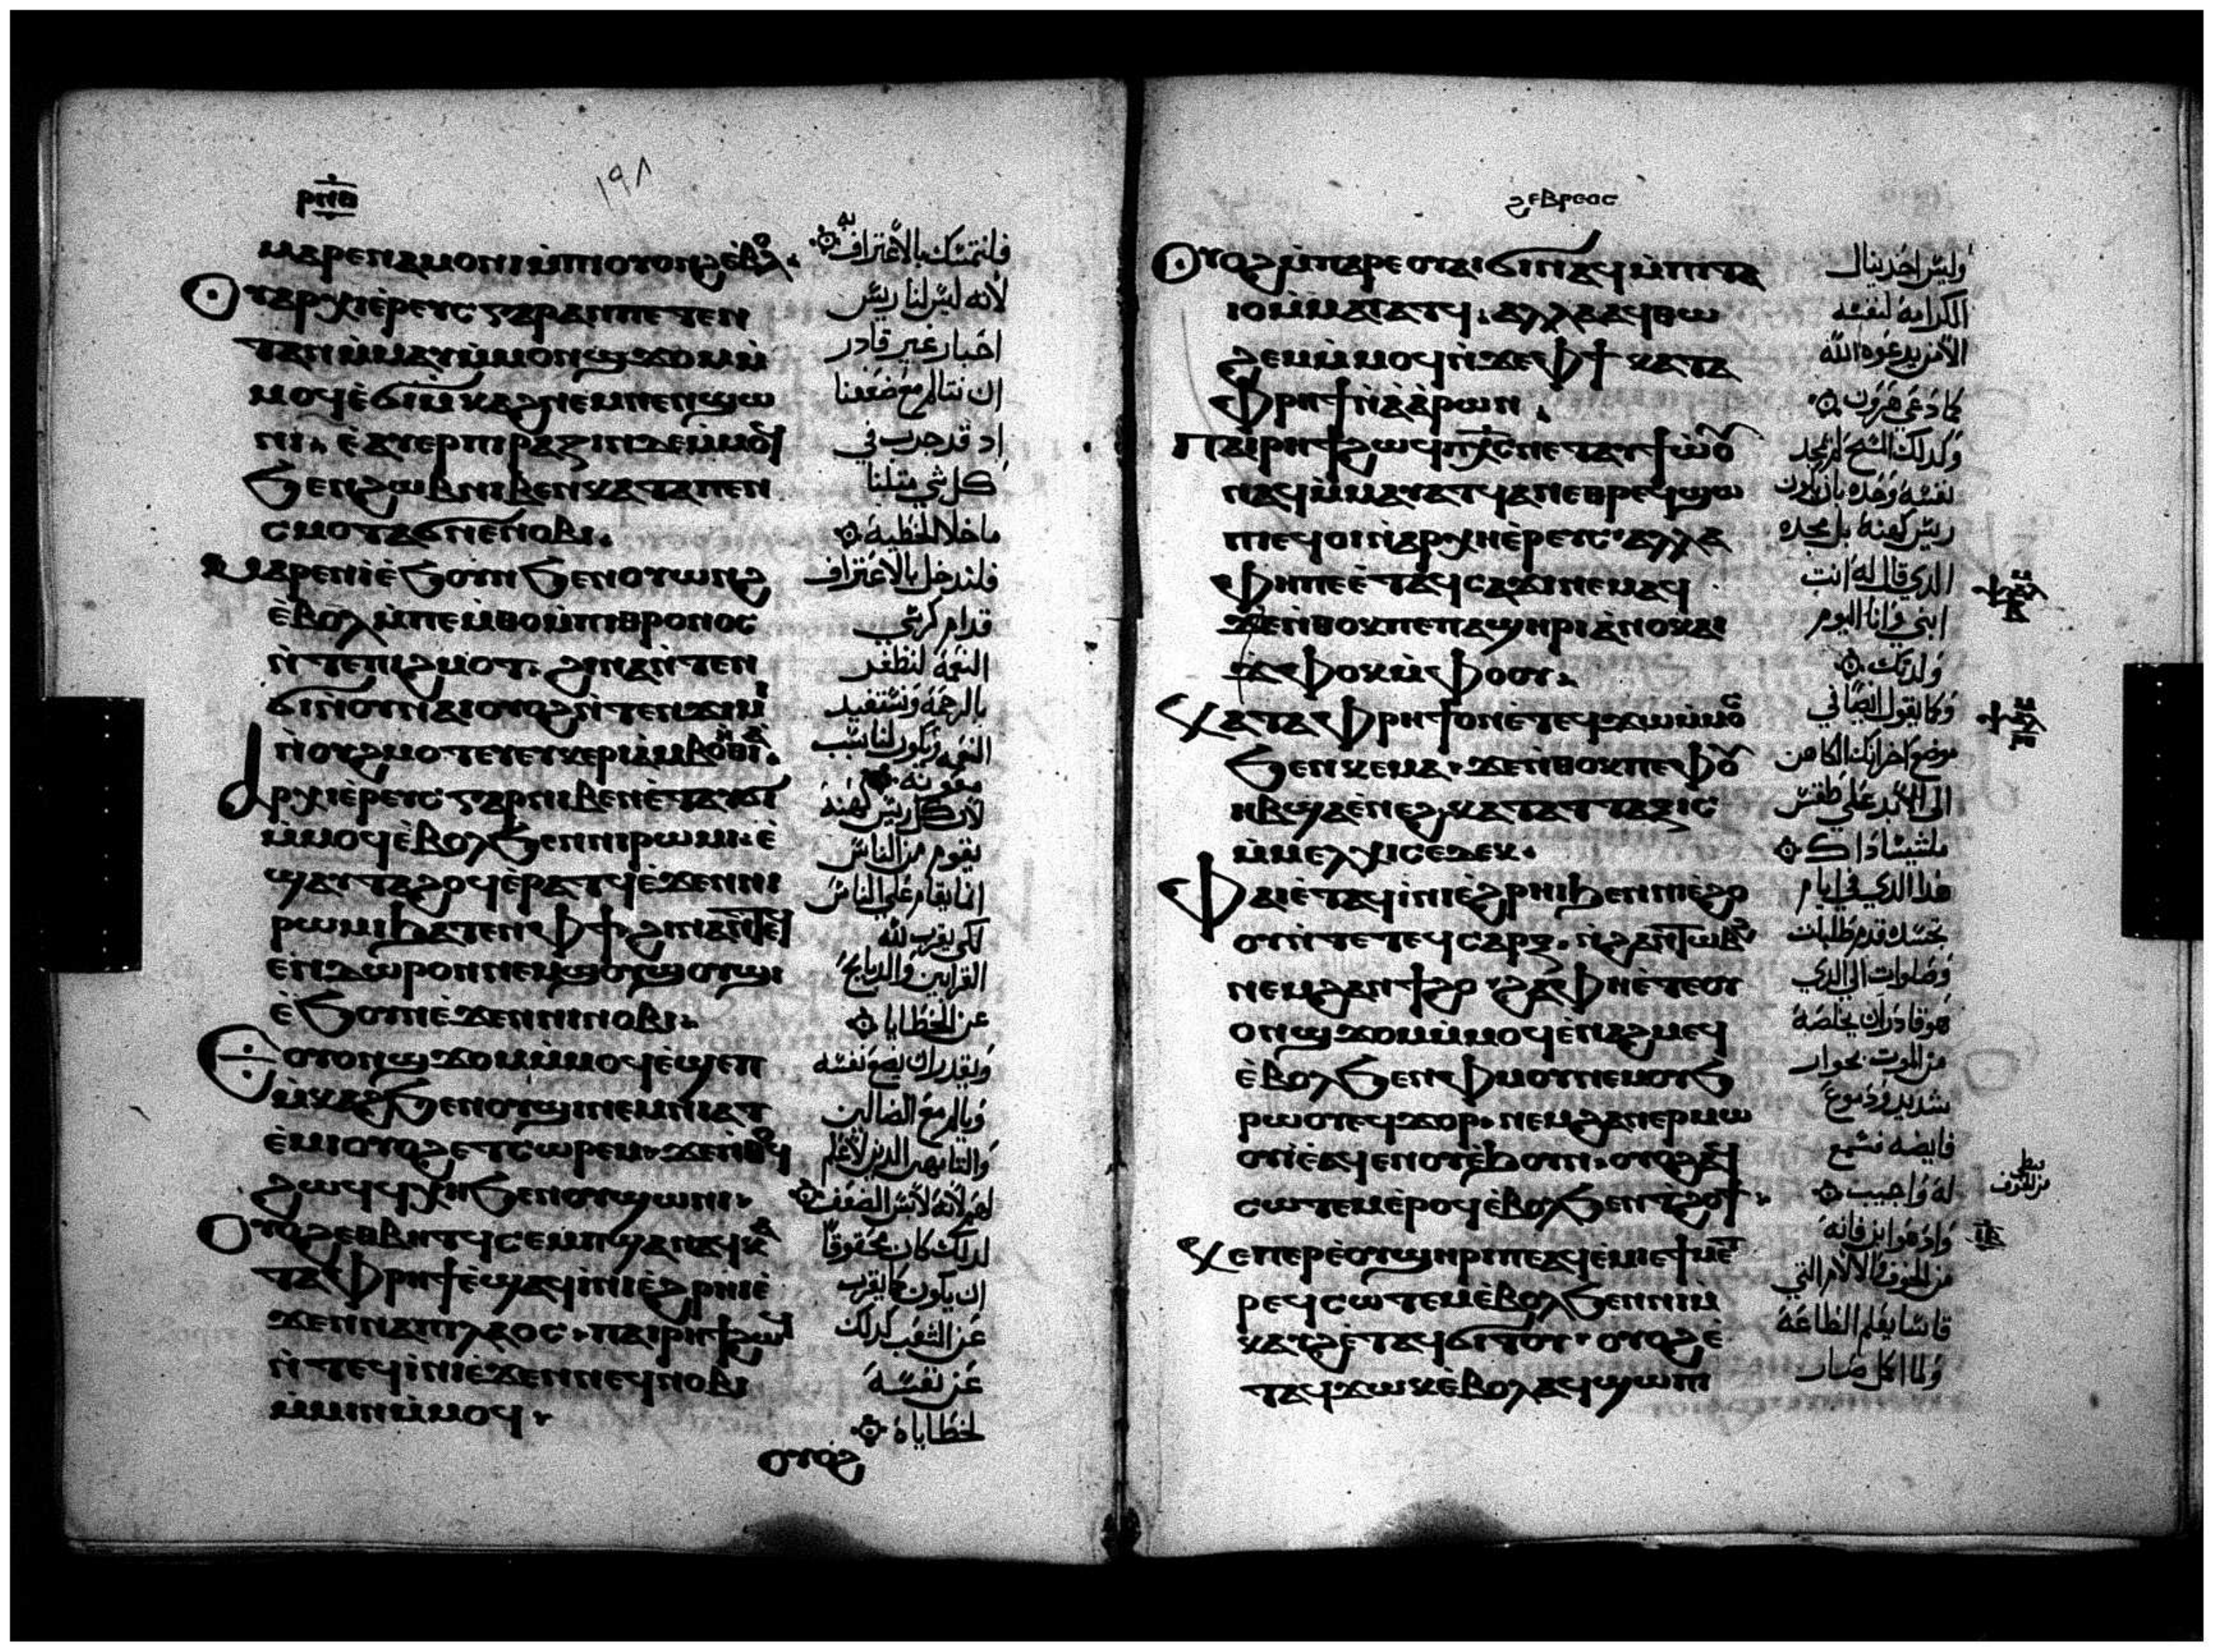 ⲣⲛⲑ
١٩٨
ⲙⲁⲣⲉⲛⲁⲙⲟⲛⲓ ⲙ̀ⲡⲓⲟⲩⲟⲛϩ ⲉ̀ⲃⲟⲗ.
ⲟⲩⲁⲣⲭⲓⲉ̀ⲣⲉⲩⲥ ⲅⲁⲣ ⲁⲛ ⲡⲉⲧⲉⲛ
ⲧⲁⲛ ⲙ̀ⲙⲁⲩ ⲙ̀ⲙⲟⲛϣϫⲟⲙ ⲙ̀
ⲙⲟϥ ⲉ̀ϭⲓⲙ̀ⲕⲁϩ ⲛⲉⲙ ⲡⲉⲛϣⲱ
ⲛⲓ. ⲉ̀ⲁⲩⲉⲣⲡⲓⲣⲁⲍⲓⲛ ⲇⲉ ⲙ̀ⲙⲟϥ
ϧⲉⲛ ϩⲱⲃ ⲛⲓⲃⲉⲛ ⲕⲁⲧⲁ ⲡⲉⲛ
ⲥⲙⲟⲧ ⲁϭⲛⲉ ⲛⲟⲃⲓ.
ⲙⲁⲣⲉⲛⲓ̀ ⲉ̀ϧⲟⲩⲛ ϧⲉⲛ ⲟⲩⲱⲛϩ
ⲉ̀ⲃⲟⲗ ⲙ̀ⲡⲉⲙ̀ⲑⲟ ⲙ̀ⲡⲓⲑⲣⲟⲛⲟⲥ
ⲛ̀ⲧⲉ ⲡⲓϩⲙⲟⲧ. ϩⲓⲛⲁ ⲛ̀ⲧⲉⲛ
ϭⲓ ⲛ̀ⲟⲩⲛⲁⲓ ⲟⲩⲟϩ ⲛ̀ⲧⲉⲛϫⲓⲙⲓ
ⲛ̀ⲟⲩϩⲙⲟⲧ ⲉⲩⲉⲩⲕⲉⲣⲓⲁ ⲙ̀ⲃⲟⲏ̀ⲑⲓⲁ.
ⲁⲣⲭⲓⲉ̀ⲣⲉⲩⲥ ⲅⲁⲣ ⲛⲓⲃⲉⲛ ⲉ̀ϣⲁⲩϭⲓ
ⲙ̀ⲙⲟϥ ⲉ̀ⲃⲟⲗ ϧⲉⲛ ⲛⲓⲣⲱⲙⲓ. ⲉ̀
ϣⲁⲩⲧⲁϩⲟϥ ⲉ̀ⲣⲁⲧϥ ⲉ̀ϫⲉⲛ ⲛⲓ
ⲣⲱⲙⲓ ϧⲁⲧⲉⲛ ⲫϯ ϩⲓⲛⲁ ⲛ̀ⲧⲉϥ
ⲉⲛ ⲇⲱⲣⲟⲛ ⲛⲉⲙ ϣⲟⲩϣⲱⲟⲩϣⲓ
ⲉ̀ϧⲟⲩⲛ ⲉ̀ϫⲉⲛ ⲛⲓⲛⲟⲃⲓ.
ⲉⲟⲩⲟⲛϣϫⲟⲙ ⲙ̀ⲙⲟϥ ⲉ̀ϣⲉⲡ
ⲙ̀ⲕⲁϩ ϧⲉⲛ ⲟⲩϣⲓ ⲛⲉⲙ ⲛⲓⲁⲧ
ⲉ̀ⲙⲓ ⲟⲩⲟϩ ⲉⲧⲥⲱⲣⲉⲙ. ϫⲉ ⲛ̀ⲑⲟϥ
ϩⲱϥ ϥⲭⲏ ϧⲉⲛ ⲟⲩϣⲱⲛⲓ.
ⲟⲩⲟϩ ⲉⲑⲃⲏⲧϥ ⲥⲉⲙⲡϣⲁ ⲛⲁϥ ⲕⲁ
ⲧⲁ ⲫⲣⲏϯ ⲉ̀ϣⲁϥⲓ̀ⲛⲓ ⲉ̀ϩⲣⲏⲓ ⲉ̀
ϫⲉⲛ ⲛⲁ ⲡⲓⲗⲁⲟⲥ. ⲡⲁⲓⲣⲏϯ ϩⲱϥ
ⲛ̀ⲧⲉϥⲓ̀ⲛⲓ ⲉ̀ϫⲉⲛ ⲛⲉϥⲛⲟⲃⲓ
ⲙ̀ⲙⲓⲛ ⲙ̀ⲙⲟϥ.
ⲟⲩⲟϩ
فلنتمسك بالاعتراف به
لانه ليس لنا ريس
احبار غير قادر
ان نتالم مع ضعفنا
اد قد جرب في
كل شي مثلنا
ما خلا الخطية
فلندخل بالاعتراف
قدام كرسي
النعمة لنظفر
بالرحمة ونستفيد
النعمه ويكون لنا سبب
معونه
لان كل ريس كهنة
يقوم من الناس
انما يقام على الناس
لكي يقرب لله
القرابين والدبايح
عن الخطايا
ويقدر ان يضع نفسه
ويالم مع الضالين
والتايهين الدين لا علم
لهم لانه لابس الضعف
لدلك كان محقوقا
ان يكون كما يقرب
عن الشعب كدلك
عن نفسه
لخطاياه
ϩⲉⲃⲣⲉⲟⲥ
ⲟⲩⲟϩ ⲙ̀ⲡⲁⲣⲉ ⲟⲩⲁⲓ ϭⲓ ⲛⲁϥ ⲙ̀ⲡⲓⲧⲁ
ⲓⲟ ⲙ̀ⲙⲁⲩⲁⲧϥ. ⲁⲗⲗⲁ ⲁϥⲑⲱ
ϩⲉⲙ ⲙ̀ⲙⲟϥ ⲛ̀ϫⲉ ⲫϯ ⲕⲁⲧⲁ
ⲫⲣⲏϯ ⲛ̀ⲁ̀ⲁ̀ⲣⲱⲛ.
ⲡⲁⲓⲣⲏϯ ϩⲱϥ ⲡⲭⲥ ⲛⲉⲧⲁϥϯⲱ̀ⲟⲩ
ⲛⲁϥ ⲙ̀ⲙⲁⲩⲁⲧϥ ⲁⲛ ⲉⲑⲣⲉϥϣⲱ
ⲡⲓ ⲉϥⲟⲓ ⲛ̀ⲁⲣⲭⲏⲉ̀ⲣⲉⲩⲥ ⲁⲗⲗⲁ
ⲫⲏ ⲡⲉ ⲉ̀ⲧⲁϥⲥⲁϫⲓ ⲛⲉⲙⲁϥ
ϫⲉ ⲛ̀ⲑⲟⲕ ⲡⲉ ⲡⲁϣⲏⲣⲓ ⲁ̀ⲛⲟⲕ ⲁⲓ
ϫⲫⲟⲕ ⲙ̀ⲫⲟⲟⲩ.
ⲕⲁⲧⲁ ⲫⲣⲏϯ ⲟⲛ ⲉ̀ⲧⲉϥϫⲱ ⲙ̀ⲙⲟⲥ
ϧⲉⲛ ⲕⲉⲙⲁ. ϫⲉ ⲛ̀ⲑⲟⲕ ⲡⲉ ⲫⲟⲩ
ⲏⲃ ϣⲁ ⲉ̀ⲛⲉϩ ⲕⲁⲧⲁ ⲧⲧⲁⲝⲓⲥ
ⲙ̀ⲙⲉⲗⲭⲓⲥⲉⲇⲉⲕ.
ⲫⲁⲓ ⲉ̀ⲧⲁϥⲓ̀ⲛⲓ ⲉ̀ϩⲣⲏⲓ ϧⲉⲛ ⲛⲓⲉ̀ϩⲟ
ⲟⲩ ⲛ̀ⲧⲉ ⲧⲉϥⲥⲁⲣⲝ. ⲛ̀ϩⲁⲛⲧⲱⲃϩ
ⲛⲉⲙ ϩⲁⲛϯϩⲟ ϩⲁ ⲫⲏ ⲉ̀ⲧⲉ ⲟⲩ
ⲟⲛϣϫⲟⲙ ⲙ̀ⲙⲟϥ ⲉ̀ⲛⲁϩⲙⲉϥ
ⲉ̀ⲃⲟⲗ ϧⲉⲛ ⲫⲙⲟⲩ ⲛⲉⲙ ⲟⲩϧ
ⲣⲱⲟⲩ ⲉϥϫⲟⲣ. ⲛⲉⲙ ϩⲁⲛⲉⲣⲙⲱ
ⲟⲩⲓ̀ ⲉⲁϥⲉⲛⲟⲩ ⲉ̀ϧⲟⲩⲛ. ⲟⲩⲟϩ ⲁϥ
ⲥⲱⲧⲉⲙ ⲉ̀ⲣⲟϥ ⲉ̀ⲃⲟⲗ ϧⲉⲛ ⲧϩⲟϯ.
ⲕⲉⲡⲉⲣ ⲉ̀ⲟⲩϣⲏⲣⲓ ⲡⲉ ⲁϥⲉ̀ⲙⲓ ⲉ̀ϯⲙⲉⲧ
ⲣⲉϥⲥⲱⲧⲉⲙ ⲉ̀ⲃⲟⲗ ϧⲉⲛ ⲛⲓⲙ̀
ⲕⲁⲩϩ ⲉ̀ⲧⲁϥϭⲓⲧⲟⲩ. ⲟⲩⲟϩ ⲉ̀
ⲧⲁϥϫⲱⲕ ⲉ̀ⲃⲟⲗ ⲁϥϣⲱⲡⲓ
وليس احد ينال
الكرامة لنفسه
الا من يدعوه الله
كما دعي هرون
وكدلك المسيح لم يمجد
نفسه وحده بان يكون
ريس كهنة بل مجده
الدي قال له انت
ابني وانا اليوم
ولدتك
وكما يقول ايضا في
موضع اخر انك الكاهن
الى الابد على طقس
ملشيساداك
هدا الدي في ايام
تجسده قدم طلبات
وصلوات الى الدي
هو قادر ان يخلصه
من الموت بجوار
شديد ودموع
فايضه فسمع
له واجيب
واد هو ابن فانه
من الخوف والالام التي
قاسا يعلم الطاعة
ولما اكمل صار